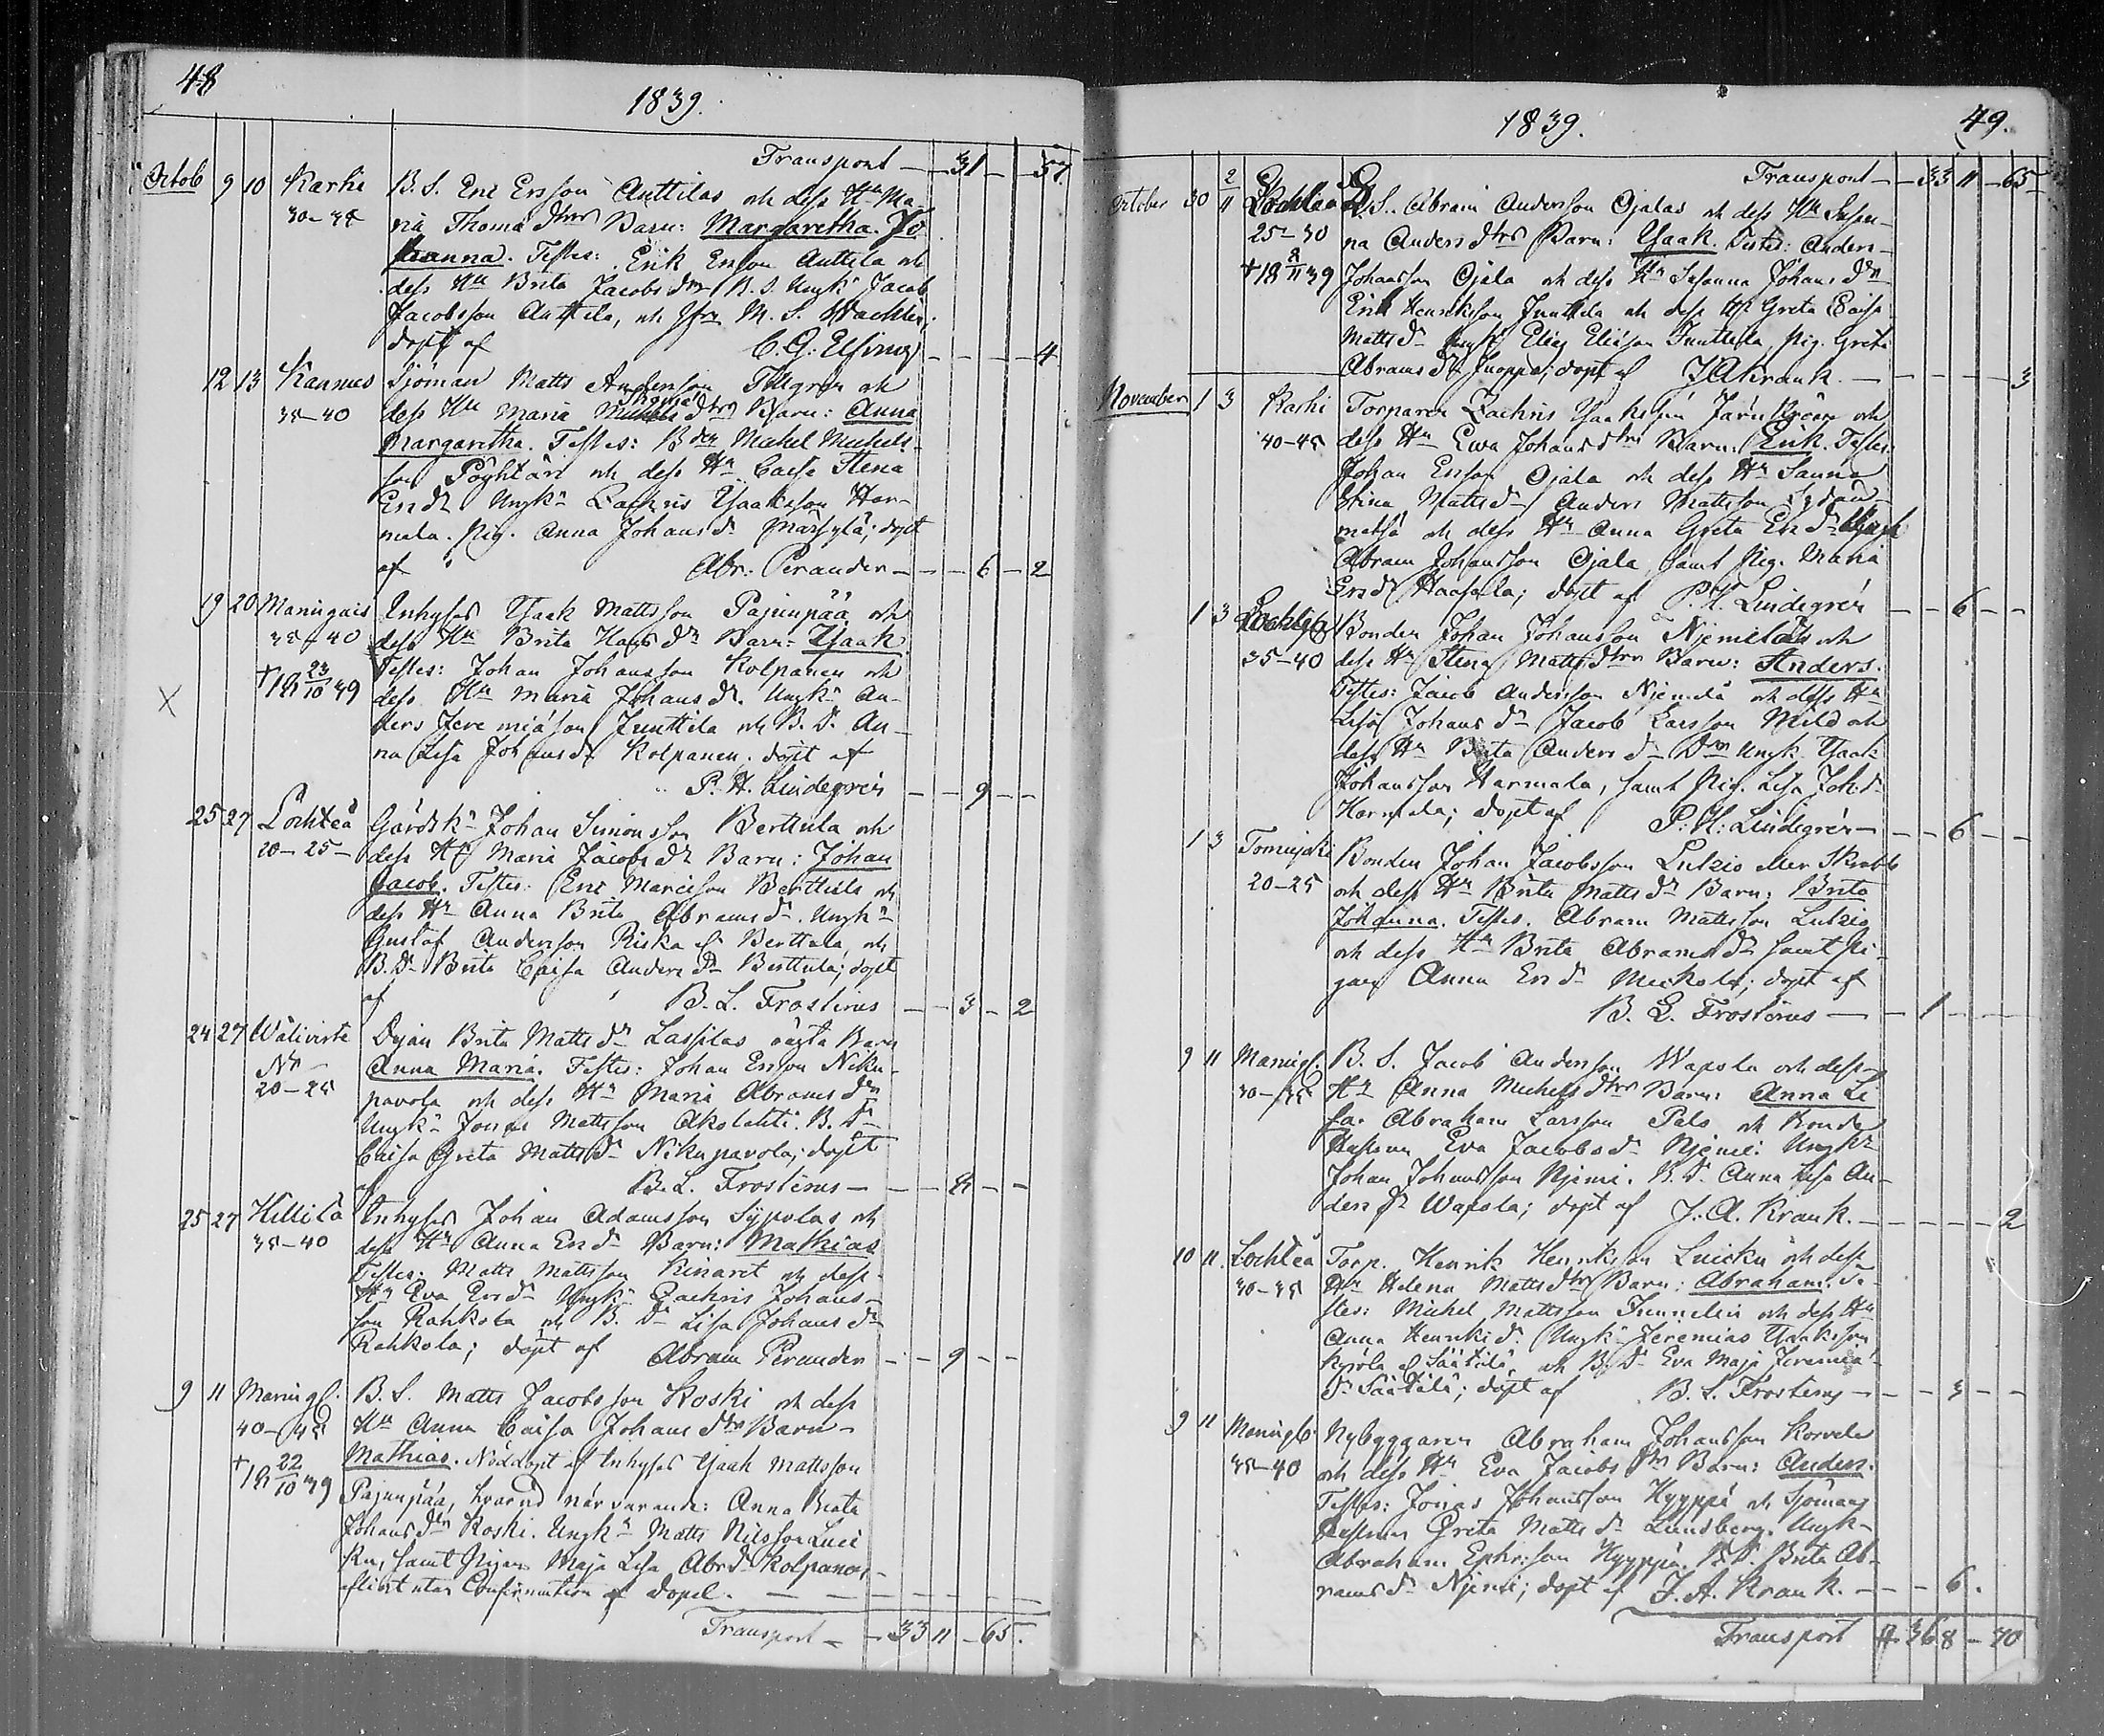 48
1839.
Transport — 31 — 57.
Octob 9 10 Karhi B. S. Eric Ersson Anttilas och dess Hu Ma-
30-35 ria Thomæ dtrs Barn: Margaretha Jo
hanna. Testes: Erik Ersson Anttila och
dess Hu Brita Jacobs dtr B. S. Ungk Jacob
Jacobsson Anttila, och Jfru M. S.
döpt af C. G. Elfving — 4
12 13 Kannus Sjöman Matts Andersson Tillgren och
35-40 dess Hu Maria Thomæ dtrs Barn: Anna
Margaretha. Testes: Bden Michel Michels-
son Pöyhtäri och dess Hu Caisa Stena
Ersdr Ungkn Zachris Isaaksson Har-
mala. Pig. Anna Johansdr Märsylä; döpt
af Abr: Perander — 6 — 2
19 20 Maningais Inhyses Isaak Mattsson Pajunpää och
35-40 dess Hu Brita Hans dr Barn: Isaak
Testes: Johan Johansson Kolpanen och
† 18 23/10 39 dess Hu Maria Johans dr. Ungkn An-
ders Jeremiässon Junttila och B. Dr An-
na Lisa Johansdr Kolpanen. döpt af
P. H. Lindegrén — 9 —
25 27 Lochteå Gårdskn Johan Simonsson Berttula och
20-25 dess Hu Maria Jacobs dr Barn: Johan
Jacob. Testes: Eric Marcisson Berttula och
dess Hu Anna Brita Abrams dr. Ungkn
Gustaf Andersson Riska el Berttala, och
B. Dr Brita Caisa Anders dr Berttula; döpt
af B. L. Frosterus — 3 — 2
24 27 Wälivirte Pigan Brita Matts dr Lassilas oägta Barn
Nr Anna Maria. Testes: Johan Ersson Niku-
20-25 pavola och dess Hu Maria Abrams dr
Ungkn Jonas Mattsson Akolahti. B. Dr
Caisa Greta Mattsdr Nikupavola; döpt
af B. L. Frosterus —
25 27 Hillilä Inhyses Johan Adamsson Sypolas och
35-40 dess Hu Anna Ersdr Barn: Mathias
Testes: Matts Mattsson Kinaret och dess
Hu Eva Ersdr Ungkn Zachris Johans-
son Rahkola och B. Dr Lisa Johans dr
Rahkola; döpt af Abram Perander — 9 —
9 11 Maningl. B. S. Matts Jacobsson Koski och dess
40-45 Hu Anna Caisa Johans dtrs Barn
† 18 22/10 39 Mathias. Nöddöpt af Inhyses Isaak Mattsson
Pajunpää, hvarvid närvarande: Anna Beata
Johansdtr Koski. Ungkn Matts Nilsson Luic
ku, samt Pigan Maja Lisa Abrdr Kolpanen,
utan Confirmation af dopet. —
Transport — 33 11 — 65.
1839.
49.
Transport — 33 11 — 65 —
October 30 2/11 Lochteå B. S. Abram Andersson Ojalas och dess Hu Susan-
25-30 na Anders dtrs Barn: Isaak. Testes: Anders
† 18 2/11 39 Johansson Ojala och dess Hu Susanna Johans dr
Erik Henriksson Junttila och dess Hu Greta Caisa
Mattsdr Ungk Elias Eliäson Junttila, Pig. Greta
Abrams dr Juoppe; döpt af J A Krank. — 3
November 1 3 Karhi Torparen Zachris Isaaksson Järnkröön och
40-45 dess Hu Ewa Johans dtrs Barn: Erik. Testes:
Johan Ersson Ojala och dess Hu Sanna
Stina Mattsdr Anders Mattsson Sydän-
metsä och dess Hu Anna Greta Ersdr Ungk
Abram Johansson Ojala samt Pig. Maria
Ersdr Haapala; döpt af P. H. Lindegrén — 6 —
1 3 Lochteå Bonden Johan Johansson Njemeläs och
35-40 dess Hu Stena Matts dtrs Barn: Anders.
Testes: Jacob Andersson Njemelä och dess Hu
Lisa Johans dr Jacob Larsson Mild och
dess Hu Brita Anders dr Drn Ungk Isaak
Johansson Harmala, samt Pig. Lisa Joh.dr
Harmala; döpt af P. H. Lindegrén — 6 —
1 3 Tomujoki Bonden Johan Jacobsson Lulzio eller Skrabb
20-25 och dess Hu Brita Matts dr Barn: Brita
Johanna. Testes. Abram Mattsson Lulzio
och dess Hu Brita Abrams dr samt Pi-
gan Anna Ersdr Meckola; döpt af
B. L. Frosterus — 1 —
9 11 Maningl. B. S. Jacob Andersson Wapola och dess
30-35 Hu Anna Michels dtrs Barn: Anna Li
sa. Abraham Larsson Palo och Bonde
Hustrun Eva Jacobsdr Njeme: Ungkn
Johan Johansson Njemi. B. Dr Anna Lisa An-
ders dr Wapola; döpt af J. A. Krank. — 2
10 11 Lochteå Torp. Henrik Henriksson Luicku och dess
30-35 Hu Helena Matts dtrs Barn: Abraham. Te-
stes: Michel Mattsson Funnelin och dess Hu
Anna Henriks dr. Ungk Jeremias Isaksson
Kyrölä el Säätilä, och B. Dr Eva Maja Jeremiä
dr Säätilä; döpt af B. L. Frosterus — 3 —
9 11 Maningl. Nybyggaren Abraham Johansson Korvela
35-40 och dess Hu Eva Jacobs dtrs Barn: Anders.
Testes: Jonas Johansson Hyyppä och Sjömans
Hustrun Greta Matts dr Lundberg. Ungk
Abraham Ephr:son Hyyppä. B. D. Brita Ab-
rams dr Njemi; döpt af J. A. Krank. — 6.
Transport 36 8 — 70